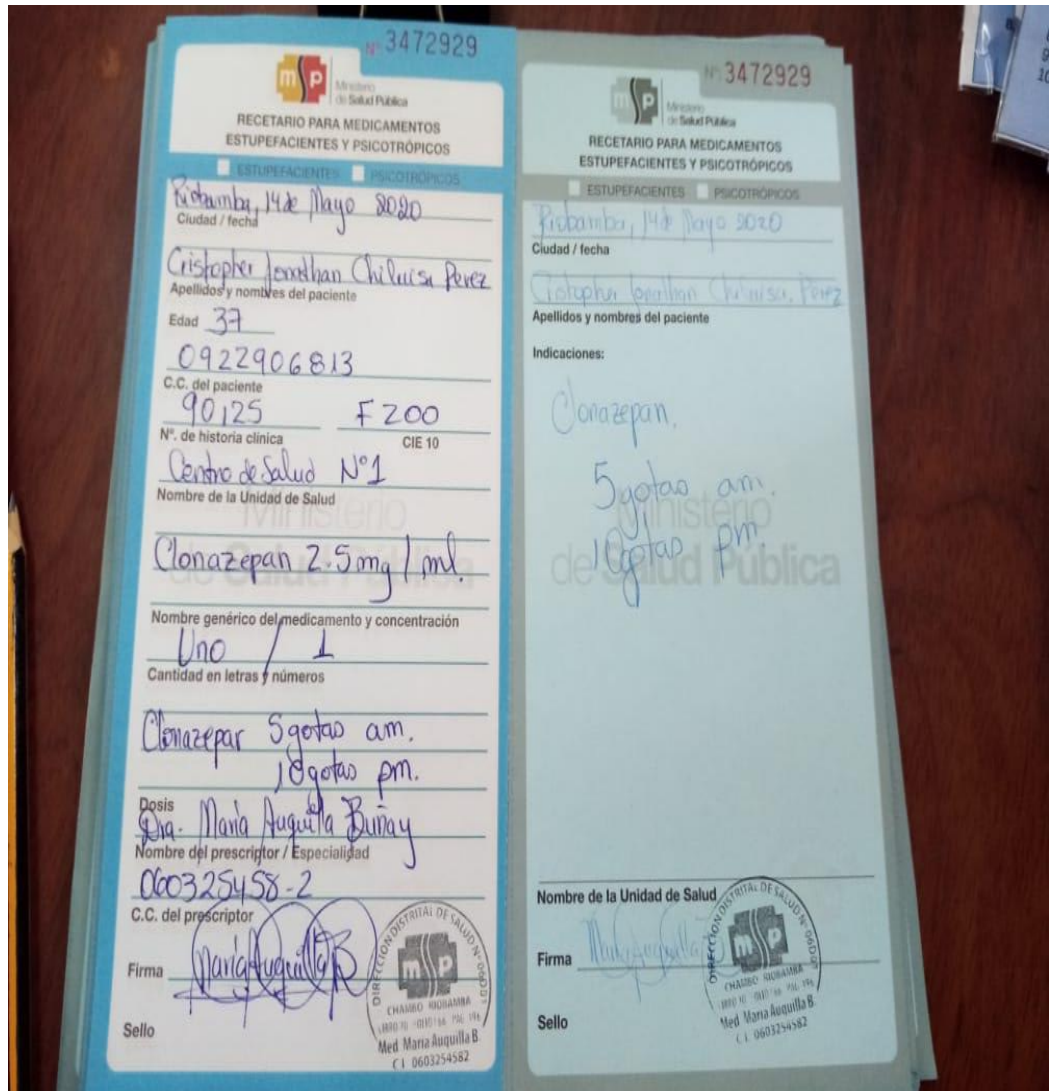 Nº 3472929
msp
Ministerio
de Salud Pública
RECETARIO PARA MEDICAMENTOS
ESTUPEFACIENTES Y PSICOTRÓPICOS
ESTUPEFACIENTES PSICOTRÓPICOS
Riobamba, 14 de Mayo 2020
Ciudad / fecha
Cristopher Jonathan Chiluisa Perez
Apellidos y nombres del paciente
Edad 37
0922906813
C.C. del paciente
90,25 F200
Nº. de historia clínica CIE 10
Centro de Salud Nº1
Nombre de la Unidad de Salud
Ministerio
de Salud Pública
Clonazepan 2.5mg / ml.
Nombre genérico del medicamento y concentración
Uno / 1
Cantidad en letras y números
Clonazepan 5 gotas am.
10 gotas pm.
Dosis
Dra. María Auquilla Buñay
Nombre del prescriptor / Especialidad
060325458-2
C.C. del prescriptor
Firma María Auquilla B
Sello
DIRECCIÓN DISTRITAL DE SALUD Nº 06D01
msp
CHAMBO RIOBAMBA
Med María Auquilla B.
C.I. 0603254582
Nº 3472929
msp
Ministerio
de Salud Pública
RECETARIO PARA MEDICAMENTOS
ESTUPEFACIENTES Y PSICOTRÓPICOS
ESTUPEFACIENTES PSICOTRÓPICOS
Riobamba, 14 de Mayo 2020
Ciudad / fecha
Cristopher Jonathan Chiluisa Perez
Apellidos y nombres del paciente
Indicaciones:
Clonazepan.
5 gotas am.
10 gotas pm.
Ministerio
de Salud Pública
Nombre de la Unidad de Salud
Firma María Auquilla B
Sello
DIRECCIÓN DISTRITAL DE SALUD Nº 06D01
msp
CHAMBO RIOBAMBA
Med María Auquilla B.
C.I. 0603254582